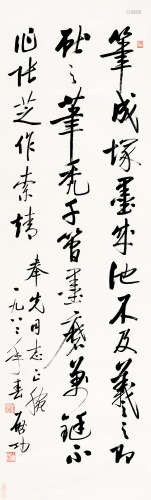 筆成塚墨成池不及羲之即
獻之筆禿千管墨磨萬鋌不
作張芝作索靖
奉先同志正腕
一九八三年春 啟功